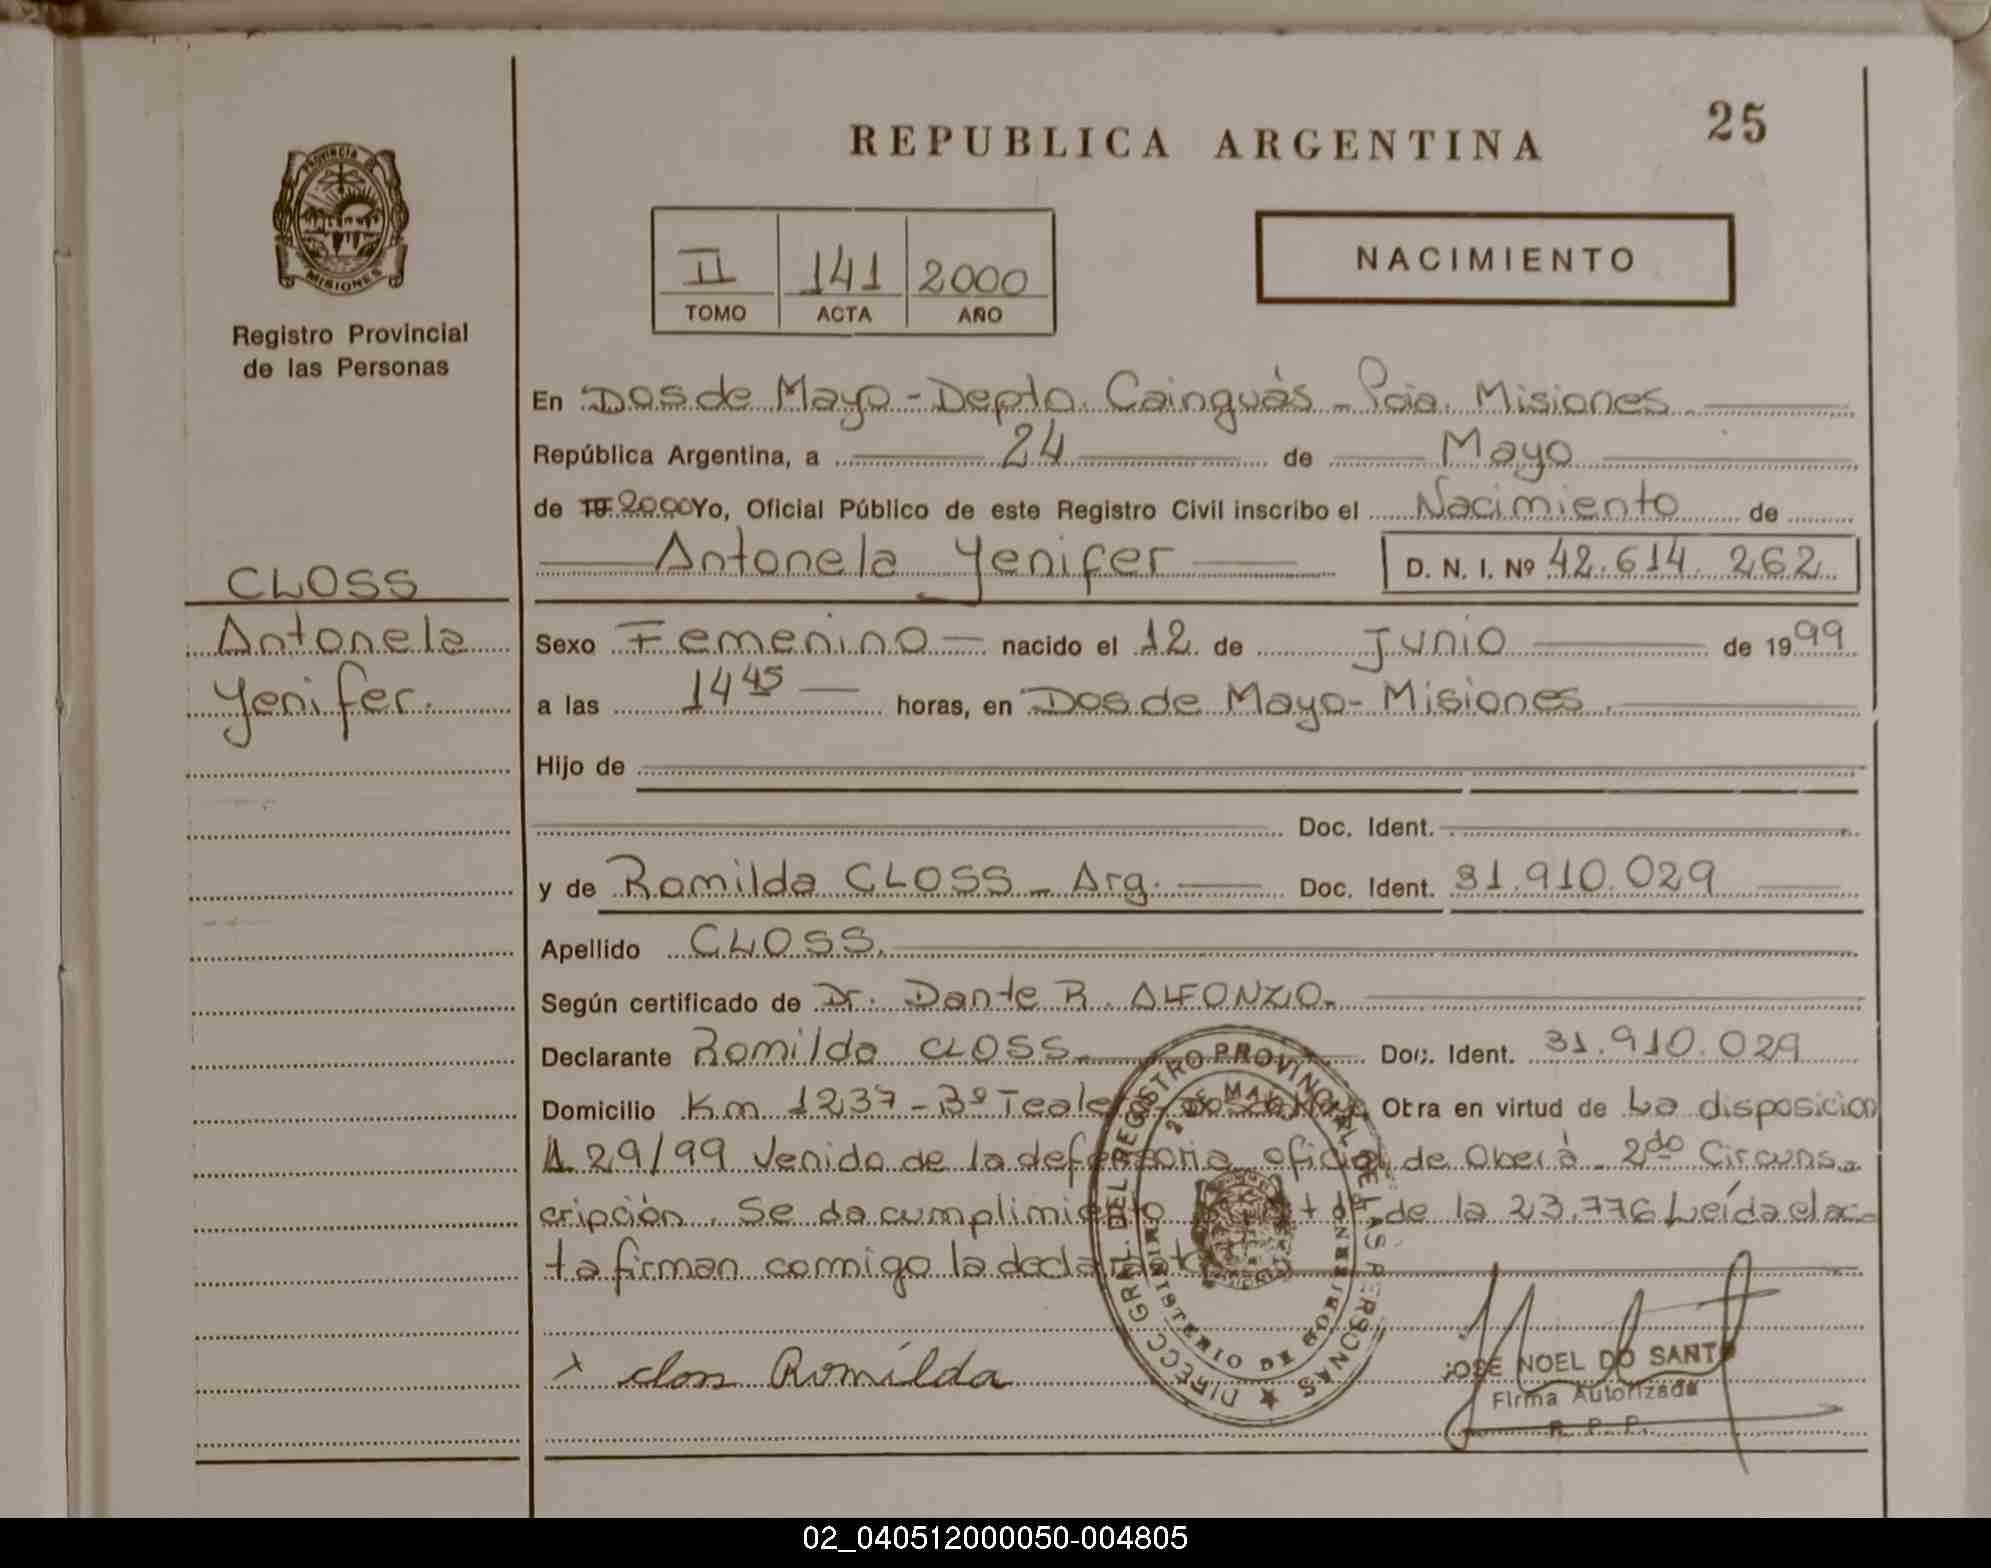 25
REPUBLICA ARGENTINA
PROVINCIA
MISIONES
Registro Provincial
de las Personas
II 141 2000
TOMO ACTA AÑO
NACIMIENTO
En Dos de Mayo - Depto. Cainguás - Pcia. Misiones
República Argentina, a 24 de Mayo
de 19 2000 Yo, Oficial Público de este Registro Civil inscribo el Nacimiento de
Antonela Yenifer D. N. I. Nº 42.614.262
CLOSS
Antonela
Yenifer.
Sexo Femenino nacido el 12 de Junio de 1999
a las 14 45 horas, en Dos de Mayo - Misiones.
Hijo de
Doc. Ident.
y de Romilda CLOSS - Arg. Doc. Ident. 31.910.029
Apellido CLOSS.
Según certificado de Dr. Dante R. ALFONZO.
Declarante Romilda CLOSS. Doc. Ident. 31.910.029
Domicilio Km 1237 - 3º Otra en virtud de La disposicion
29/99 Venida de la defensoria oficial de Oberá - 2do Circuns-
cripción. Se da cumplimiento de la 23.776 Leída el ac-
ta firman conmigo la declarante
x Closs Romilda
DIRECC. GRAL. DEL REGISTRO PROVINCIAL DE LAS PERSONAS
2 DE MAYO
MINISTERIO DE GOBIERNO
JOSE NOEL DO SANTO
Firma Autorizada
R. P. P.
02_040512000050-004805